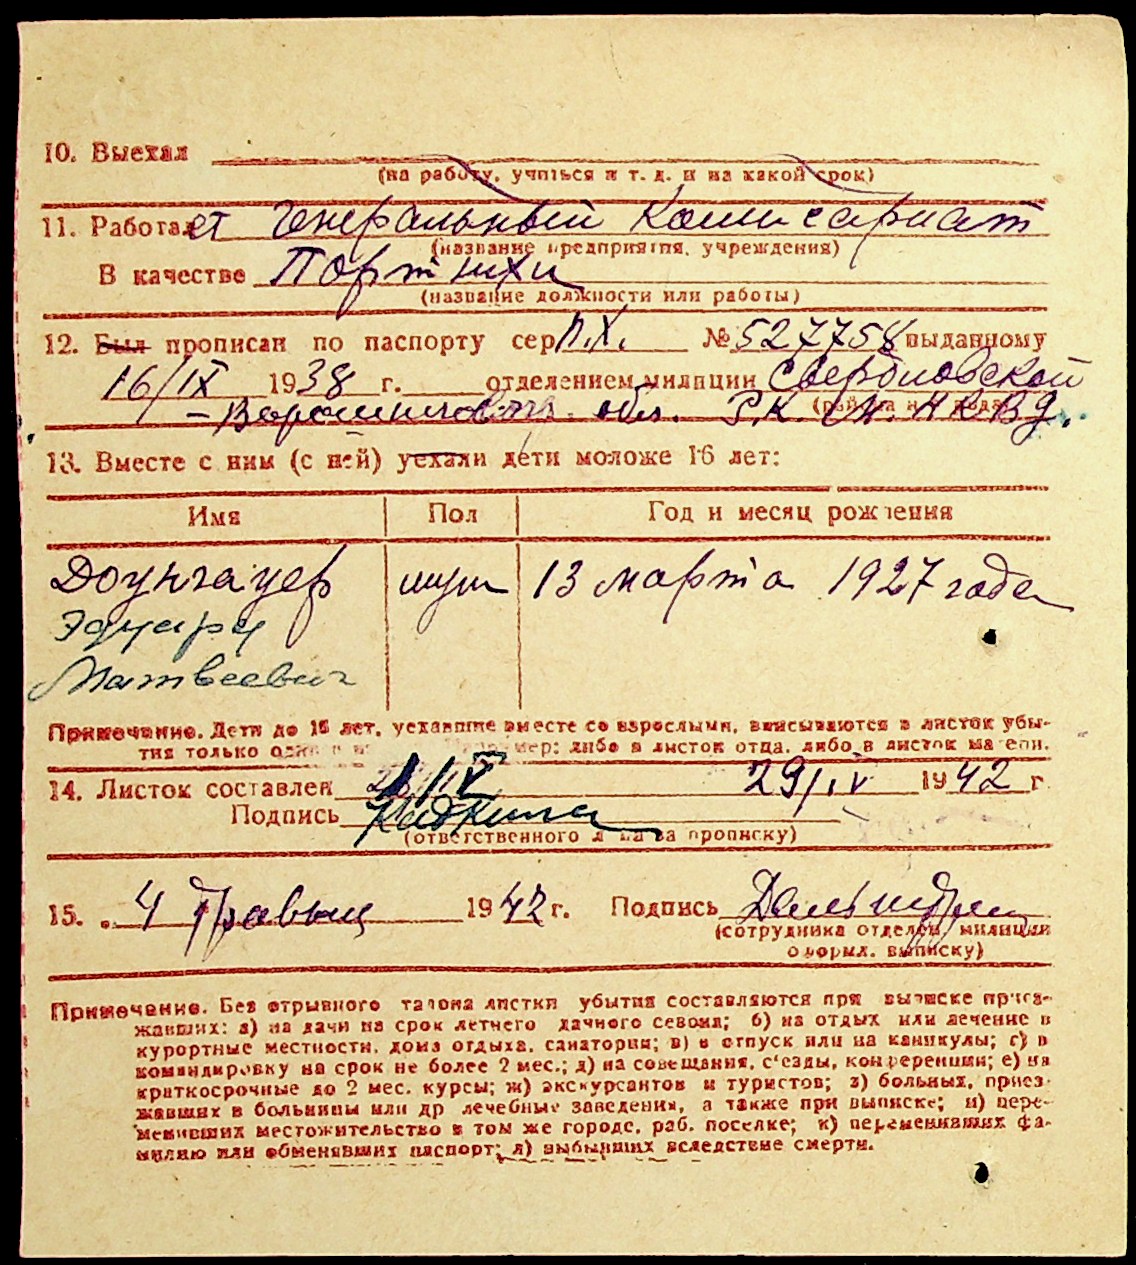 10. Выехал
(на работу, учиться и т. д. и на какой срок)
11. Работает Генеральный Комиссариат
(название предприятия, учреждения)
В качестве Портнихи
(название должности или работы)
12. Был прописан по паспорту сер. П.Х. № 527758 выданному
16/IX 1938 г. отделением милиции Свердловской
- Ворошиловгр. обл. Р.К. НКВД.
13. Вместе с ним (с ней) уехали дети моложе 16 лет:
Имя Пол Год и месяц рождения
Доунгауер муж 13 марта 1927 года
Эдуард
Матвеевич
Примечание. Дети до 16 лет, уехавшие вместе со взрослыми, вписываются в листок убы-
тия только либо в листок отца, либо в листок матери.
14. Листок составлен 29/IV 1942 г.
Подпись
(ответственного лица за прописку)
15. 4 Травня 1942 г. Подпись
(сотрудника отделен. милиции
оформл. выписку)
Примечание. Без отрывного талона листки убытия составляются при выписке приез-
жавших: а) на дачи на срок летнего дачного сезона; б) на отдых или лечение в
курортные местности, дома отдыха, санатории; в) в отпуск или на каникулы; г) в
командировку на срок не более 2 мес.; д) на совещания, с'езды, конференции; е) на
краткосрочные до 2 мес. курсы; ж) экскурсантов и туристов; з) больных, приез-
жавших в больницы или др лечебные заведения, а также при выписке; и) пере-
менивших местожительство в том же городе, раб. поселке; к) переменивших фа-
милию или обменявших паспорт; л) выбывших вследствие смерти.